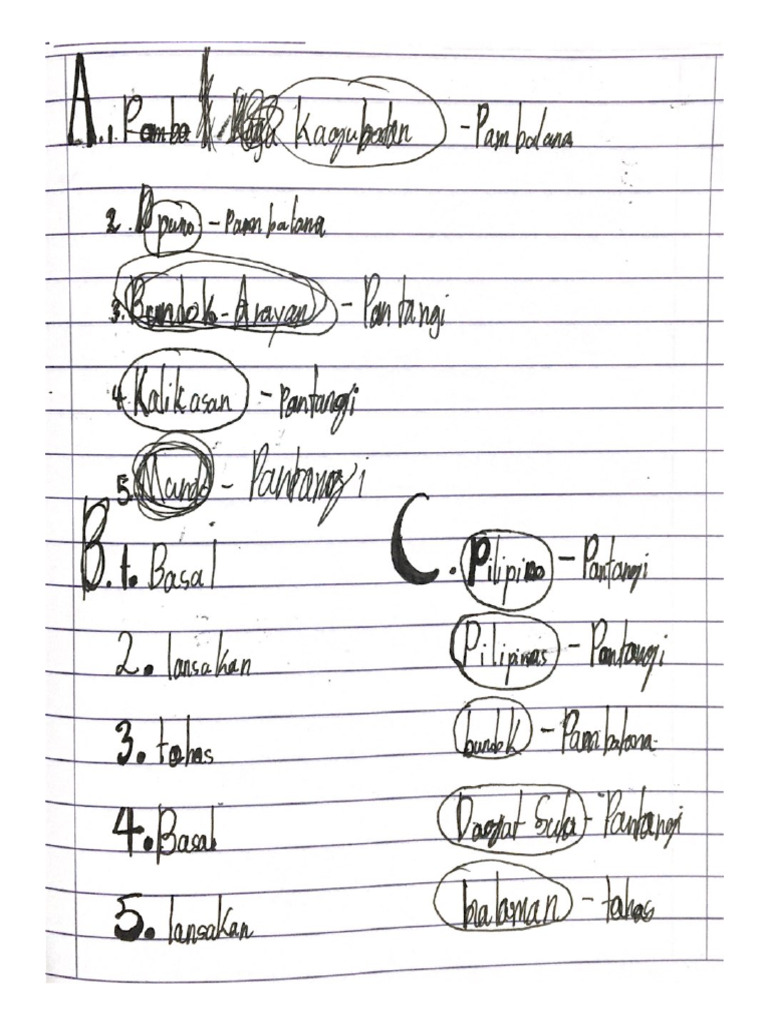 A. 1. Kagubatan - Pambalana
2. puno - Pambalana
3. Bundok-Arayan - Pantangi
4. Kalikasan - pantangi
5. - Pantangi
B. 1. Basal
2. lansakan
3. tahas
4. Basal
5. lansakan
C. Pilipino - Pantangi
Pilipinas - Pantangi
bundok - Pambalana
Dagat Sulu - Pantangi
halaman - tahas